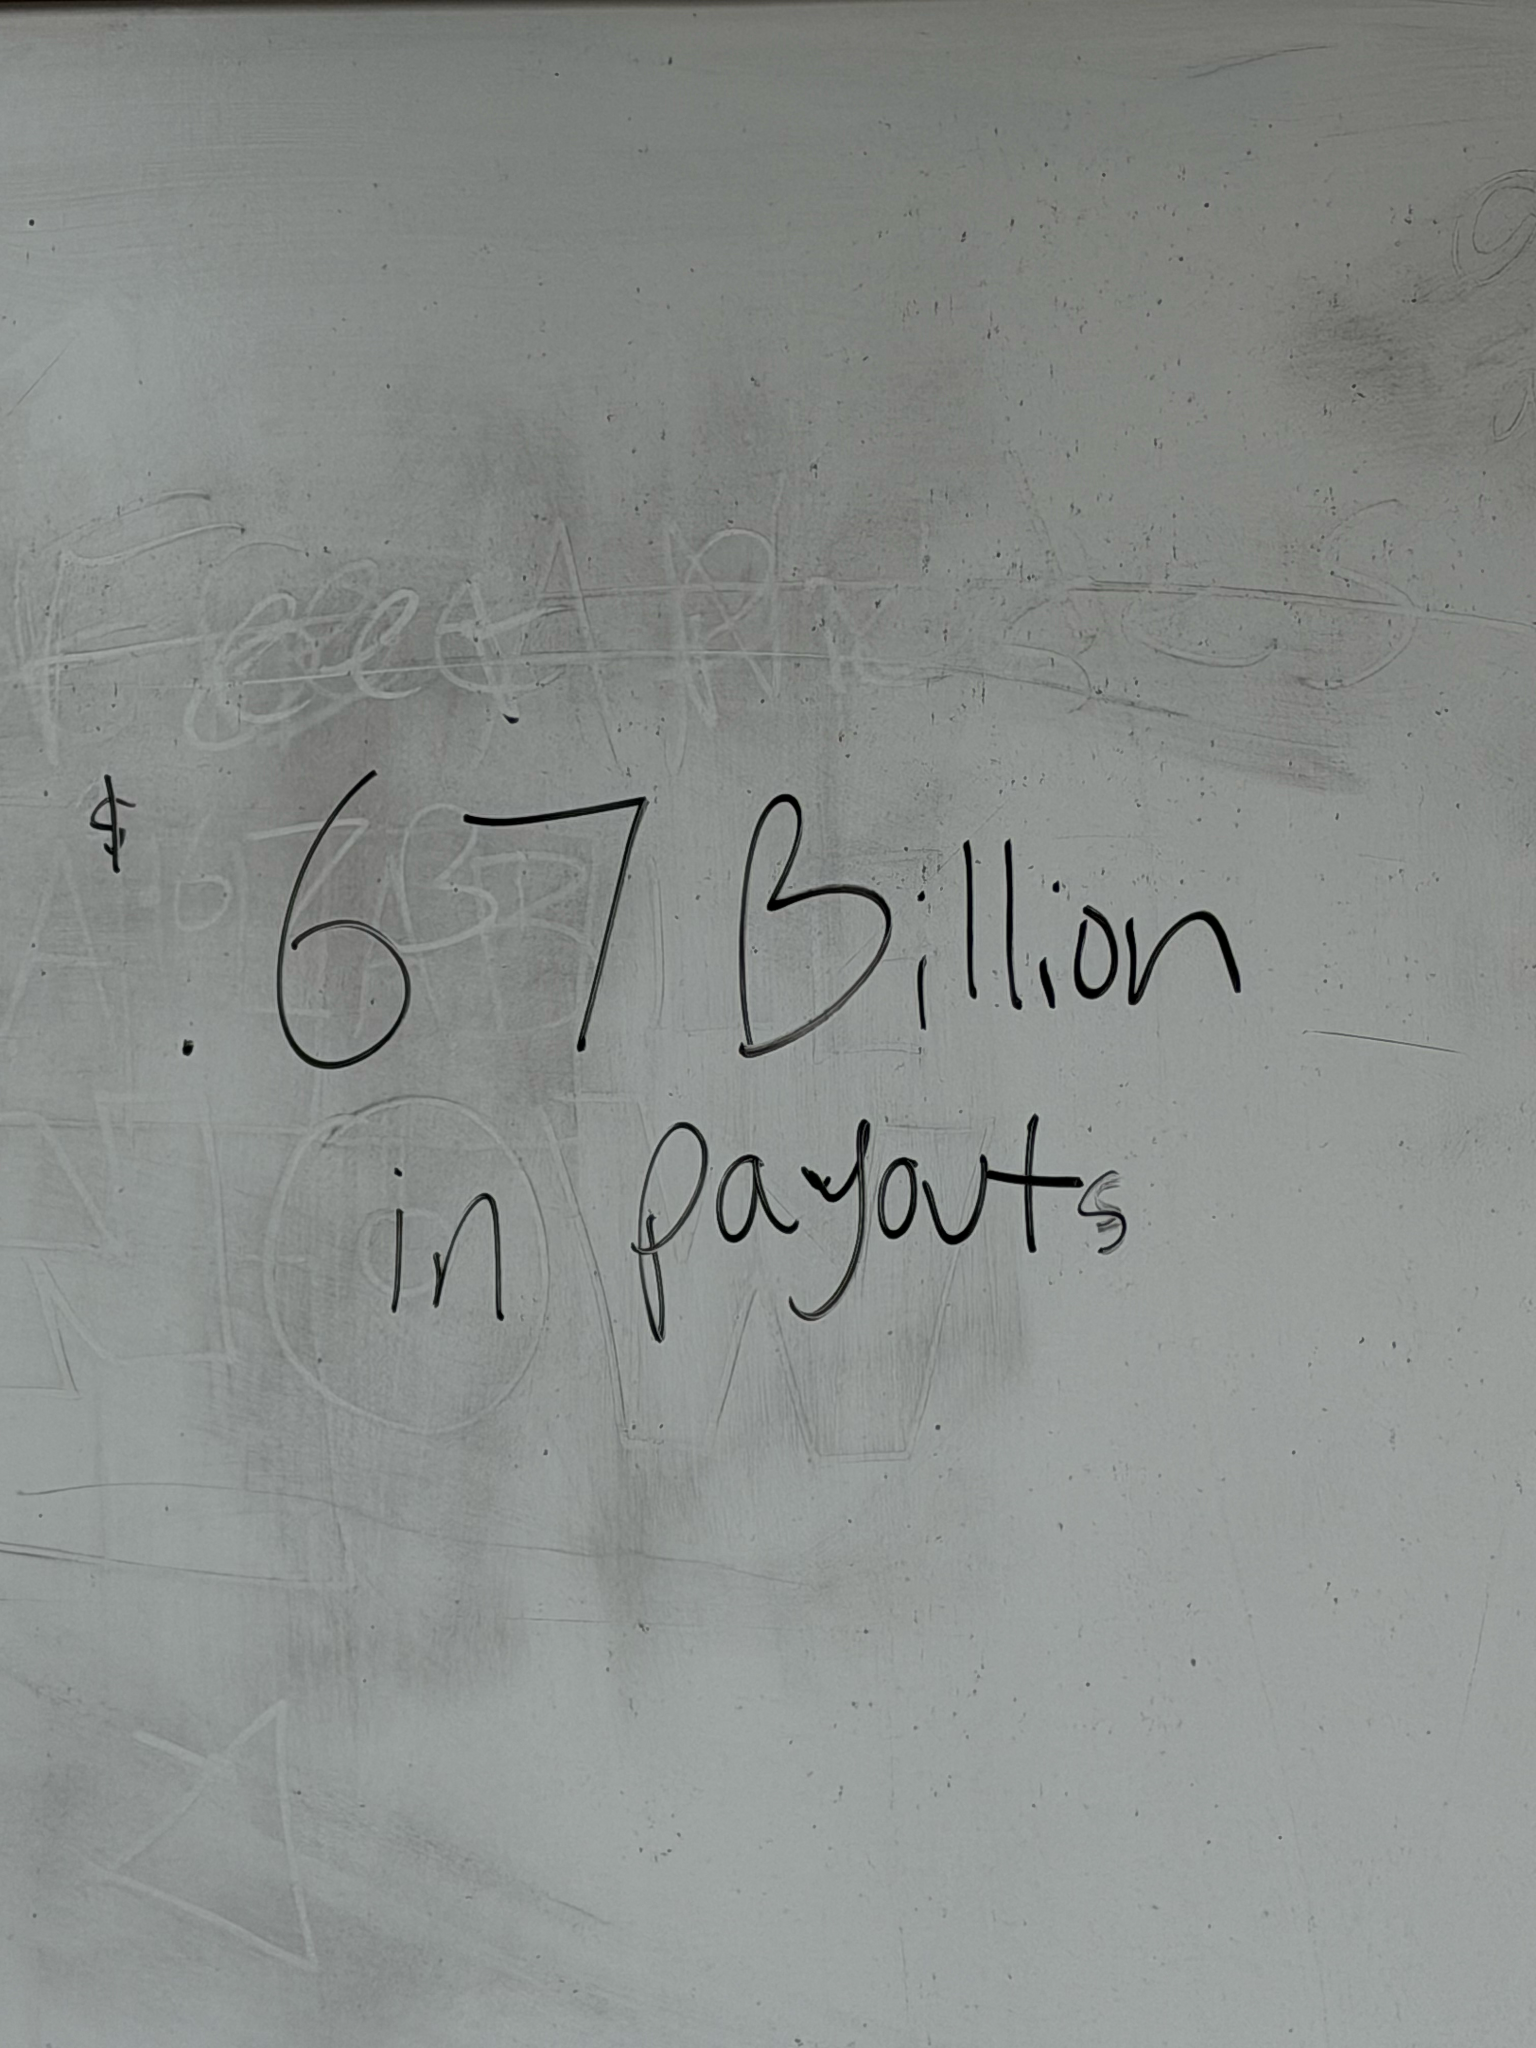 $.67 Billion
in payouts